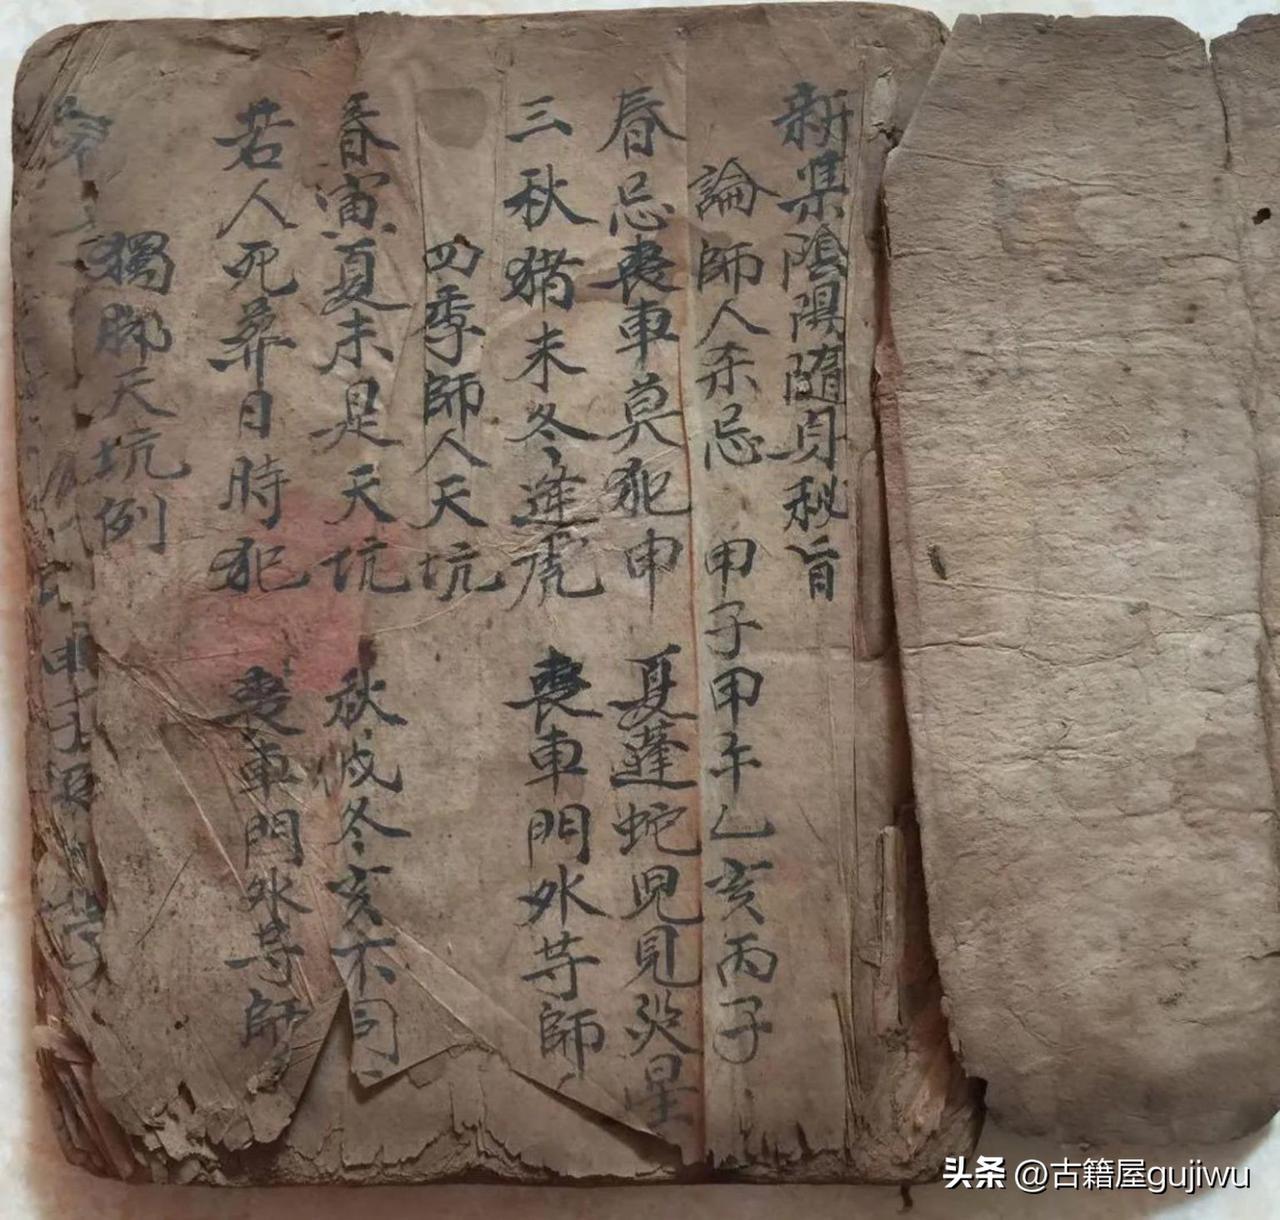 新集陰陽隨身秘旨
論師人杀忌 甲子甲午乙亥丙子
春忌喪車莫犯申 夏蓬蛇児見災星
三秋猪未冬逢虎 喪車門外等師
四季師人天坑
春寅夏未是天坑 秋戌冬亥不同
若人死葬日時犯 喪車門外等師
獨脚天坑例
申子
头条 @古籍屋gujiwu